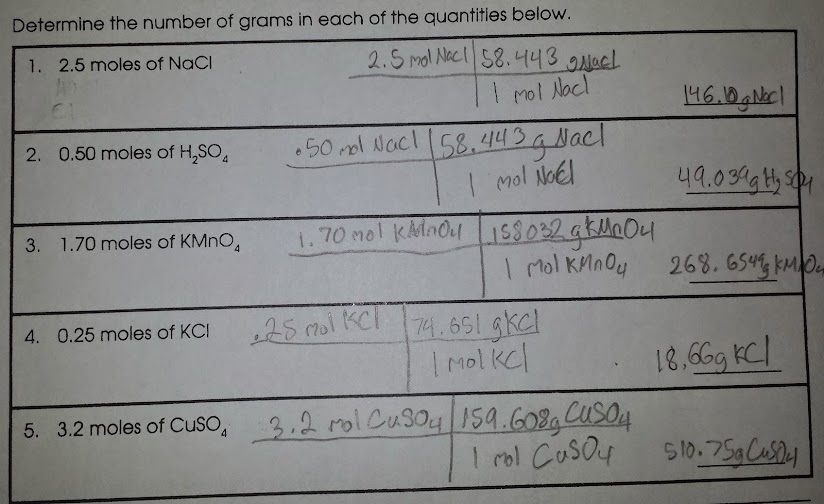 Determine the number of grams in each of the quantities below.
1. 2.5 moles of NaCl
2.5 mol Nacl 58.443 gNacl
1 mol Nacl
146.10gNacl
2. 0.50 moles of H₂SO₄
.50 mol Nacl 58.443g Nacl
1 mol NaCl
49.039g H₂SO4
3. 1.70 moles of KMnO₄
1.70 mol KMnO4 158032 gKMnO4
1 mol KMnO4
268.654g KMnO4
4. 0.25 moles of KCl
.25 mol KCl 74.651 gKCl
1 mol KCl
18.66g KCl
5. 3.2 moles of CuSO₄
3.2 mol CuSO4 159.608g CuSO4
1 mol CuSO4
510.75g CuSO4